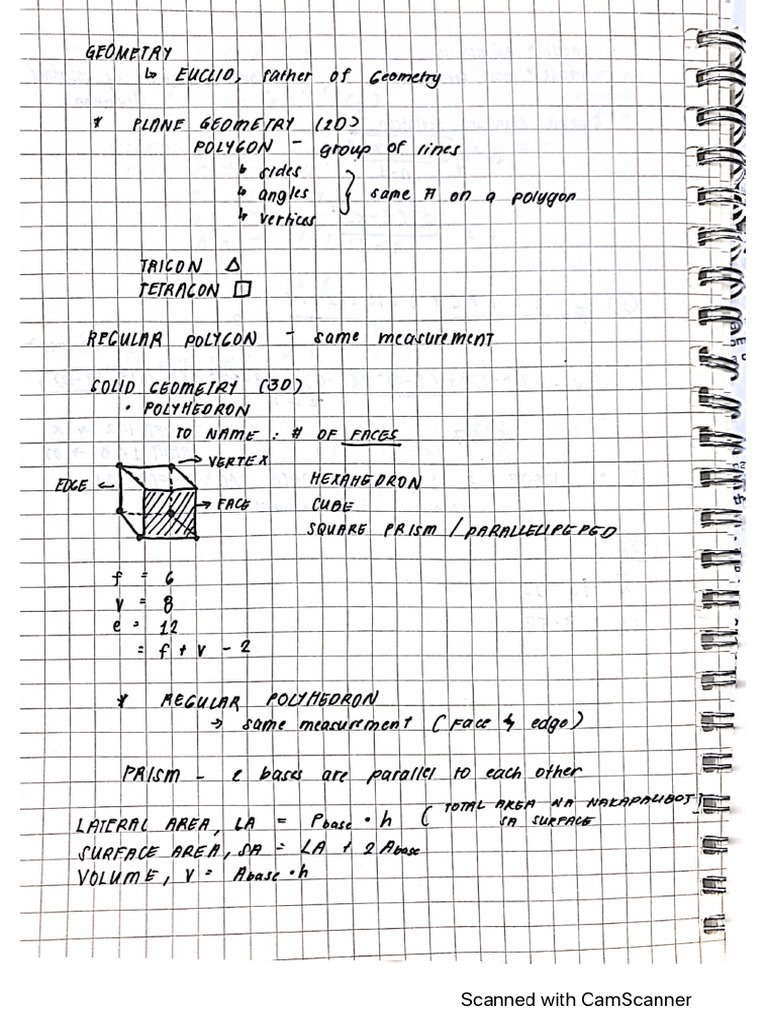 GEOMETRY
↳ EUCLID, Father of Geometry
* PLANE GEOMETRY (2D)
POLYGON - group of lines
↳ sides
↳ angles } same # on a polygon
↳ vertices
TRIGON △
TETRAGON □
REGULAR POLYGON - same measurement
SOLID GEOMETRY (3D)
• POLYHEDRON
TO NAME : # OF FACES
VERTEX
EDGE
FACE
HEXAHEDRON
CUBE
SQUARE PRISM / PARALLELIPEPED
f = 6
v = 8
e = 12
= f + v - 2
* REGULAR POLYHEDRON
→ same measurement (Face & edge)
PRISM - 2 bases are parallel to each other
LATERAL AREA, LA = Pbase • h (TOTAL AREA NA NAKAPALIBOT SA SURFACE)
SURFACE AREA, SA = LA + 2 Abase
VOLUME, V = Abase • h
Scanned with CamScanner